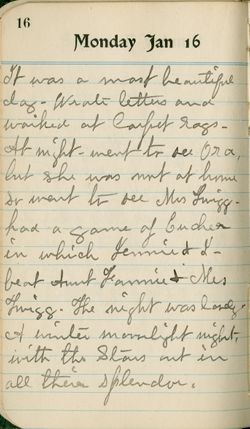 16
Monday Jan 16
It was a most beautiful
day. Wrote letters and
worked at Carpet rags.
At night went to see Ora,
but she was not at home
so went to see Mrs Twigg.
had a game of Eucher
in which Jennie & I
beat Aunt Fannie & Mrs
Twigg. The night was lovely.
A winter moonlight night,
with the Stars out in
all their Splendor.